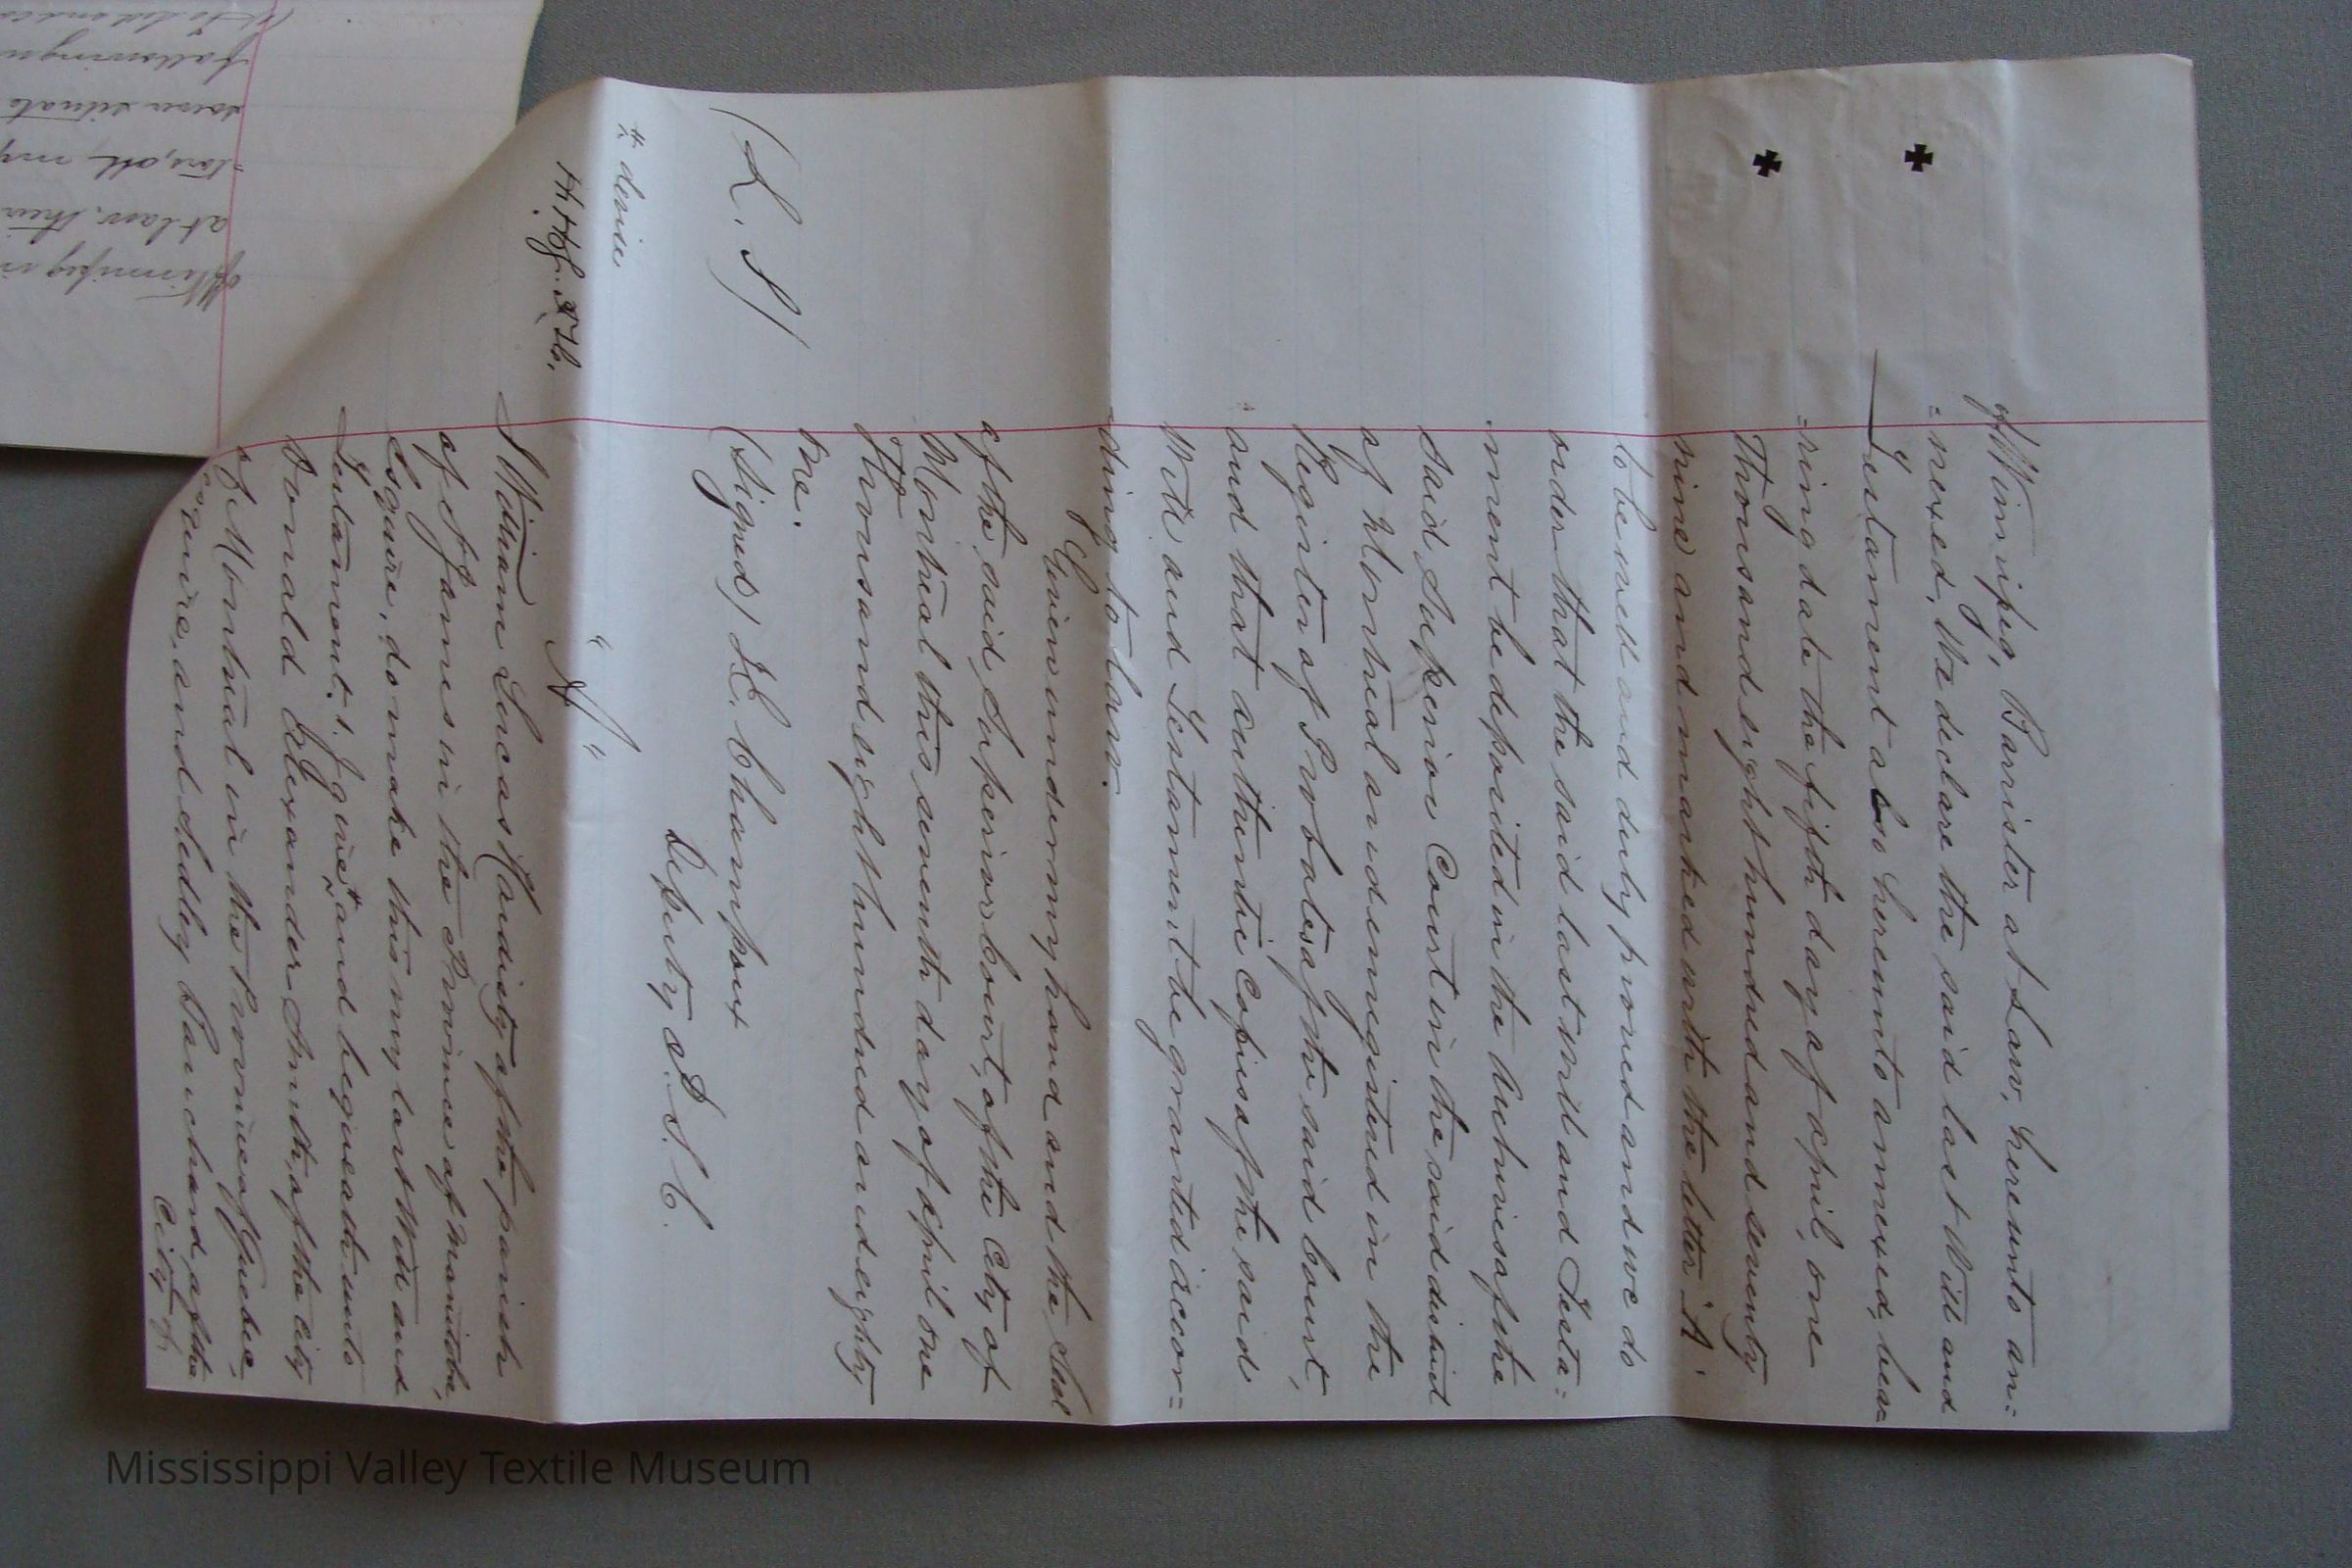 of Winnipeg, Barrister at Law, hereunto an=
=nexed, We declare the said last Will and
Testament also hereunto annexed, bea=
=ring date the fifth day of April, one
Thousand eight hundred and seventy
nine and marked with the letter "A".
to be and duly proved and we do
order that the said last Will and Testa=
ment be deposited in the Archives of the
said Superior Court in the said district
of Montreal and enregistered in the
Register of Probates of the said Court,
and that authentic Copies of the said
Will and Testament be granted accor=
ding to law.
Given under my hand and the Seal
of the said Superior Court, of the City of
Montreal this seventh day of April one
Thousand eight hundred and eighty
one.
(L. S)
(Signed) L. Champoux
Deputy P. S. C.
# devise
"A"
I William Lucas Hardisty of the parish
of St James in the Province of Manitoba,
Esquire, do make this my last Will and
Testament. 1. I give # and bequeath unto
Donald Alexander Smith, of the City
of Montreal in the Province of Quebec,
esquire, and Sedley Blanchard, of the
City of
following
situate
all my
at law, their
Winnipeg in
Mississippi Valley Textile Museum